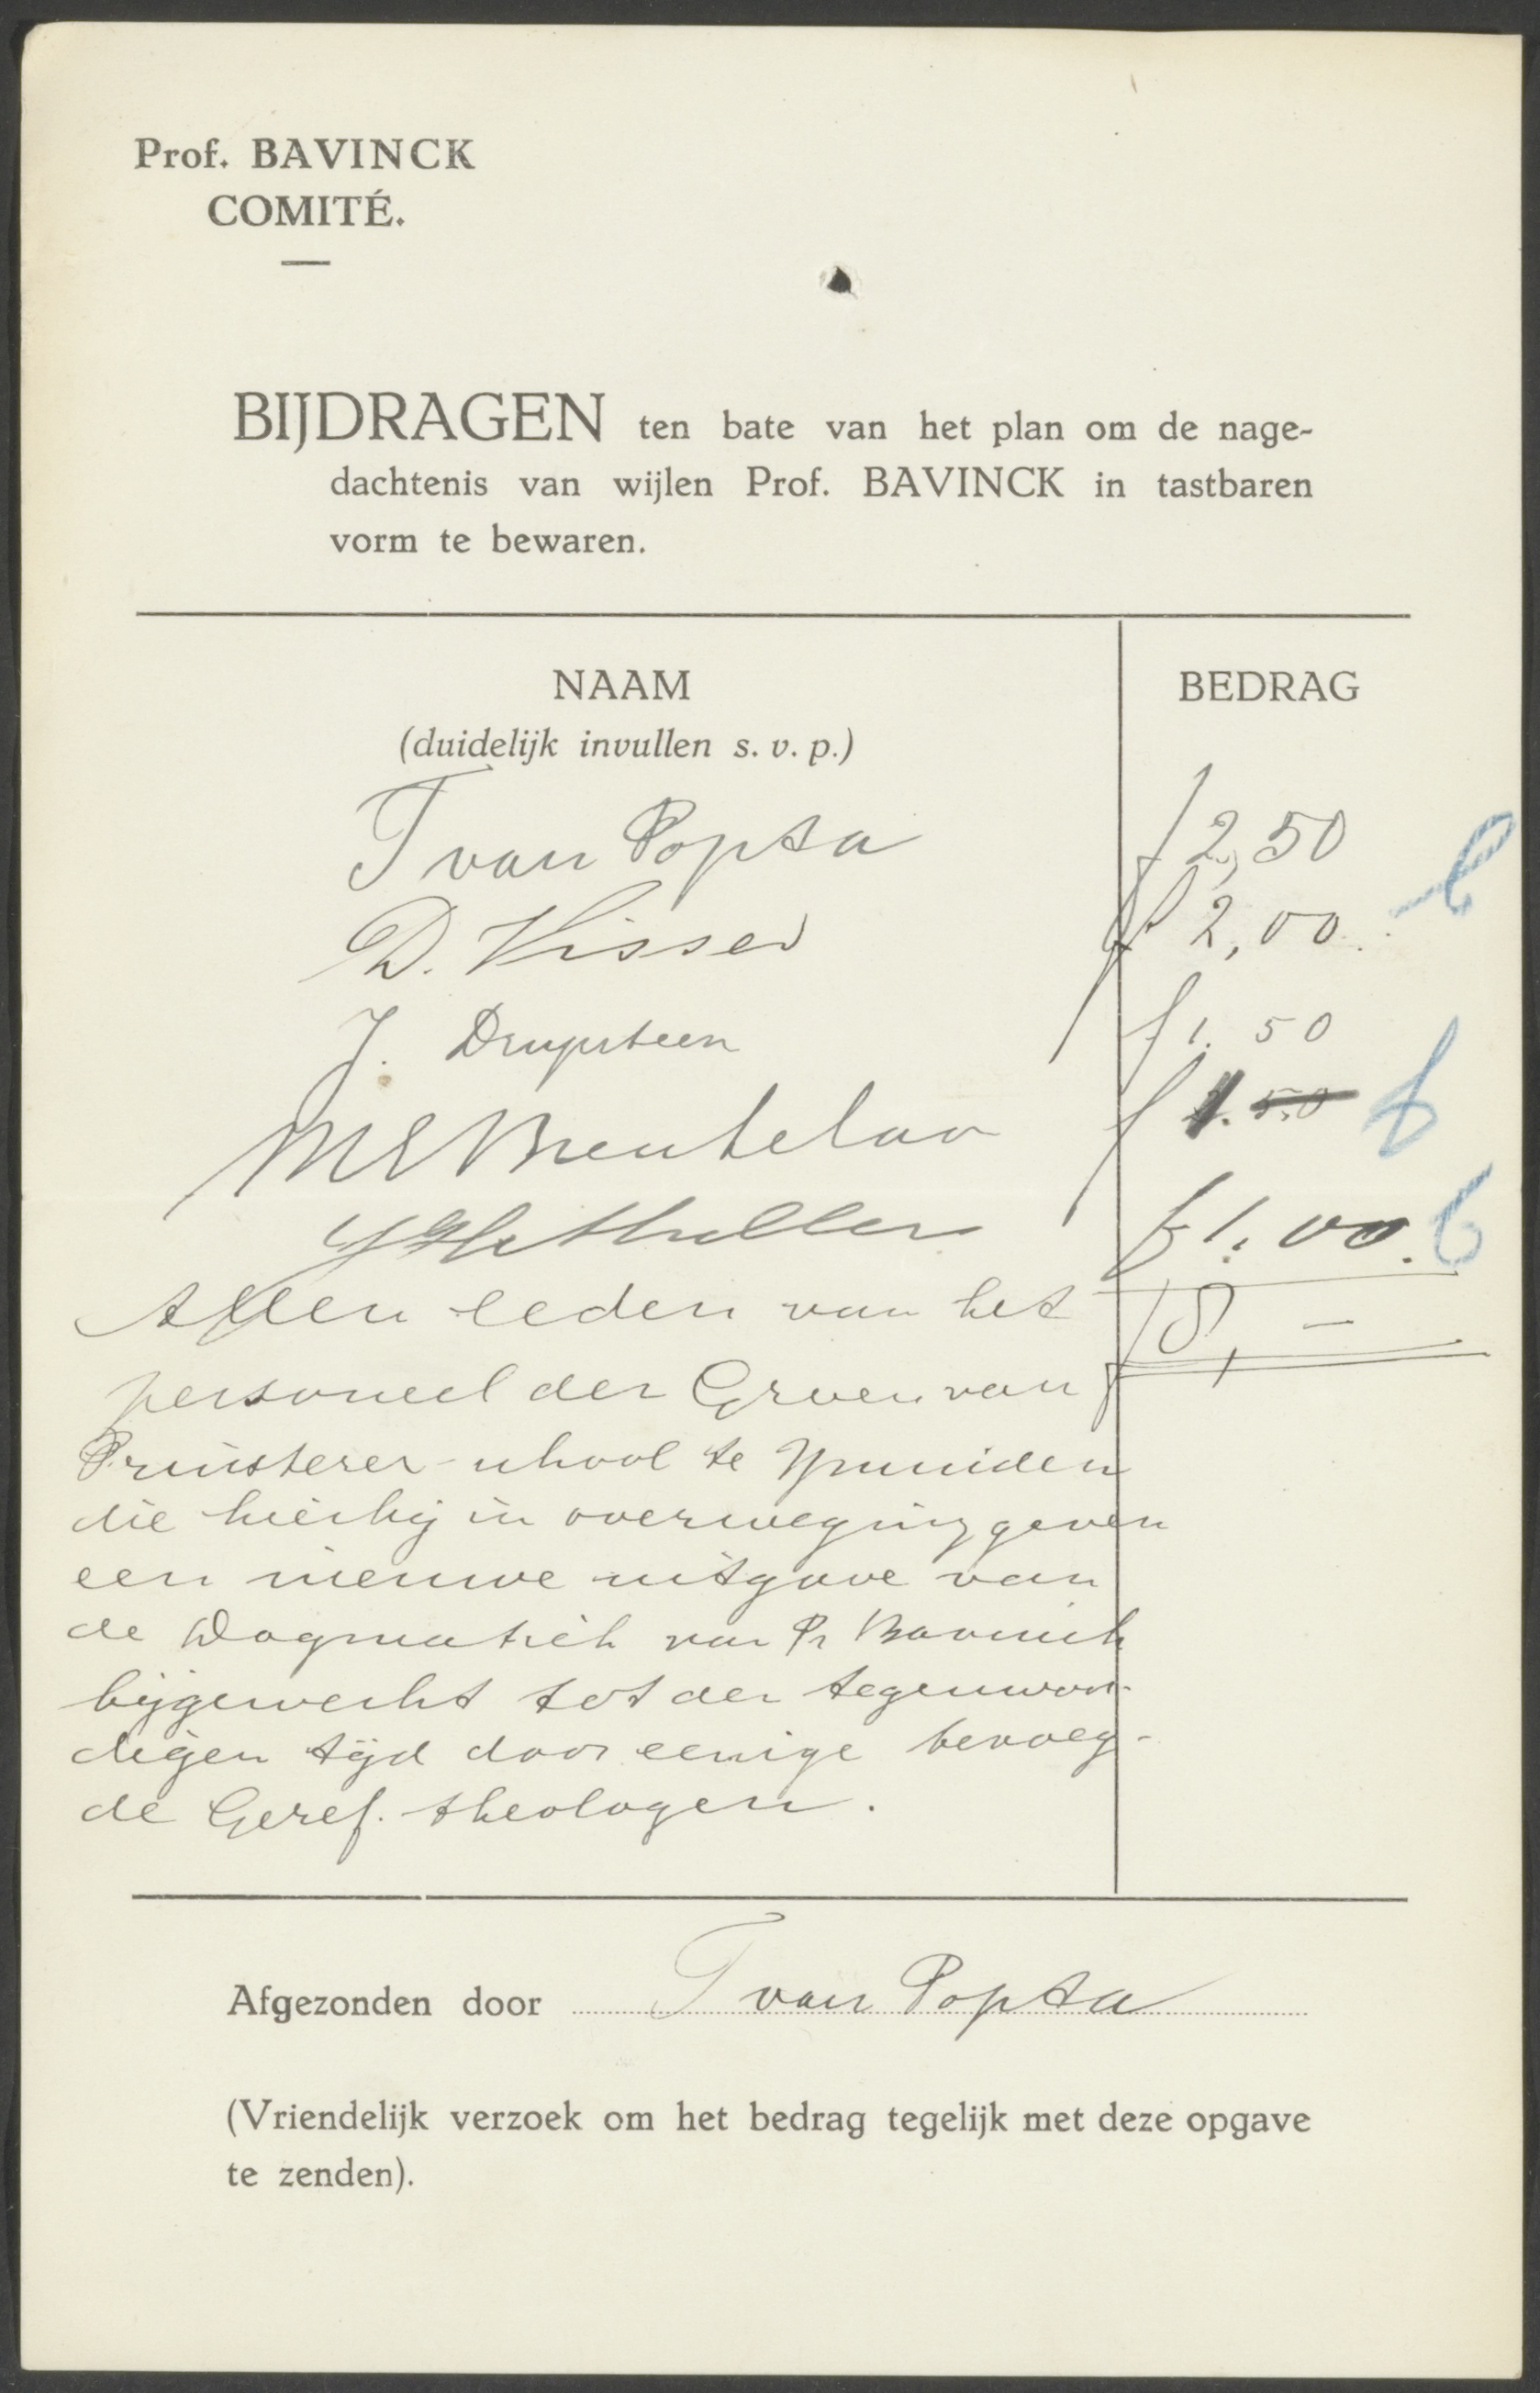 Prof. BAVINCK
COMITÉ.
BIJDRAGEN ten bate van het plan om de nage-
dachtenis van wijlen Prof. BAVINCK in tastbaren
vorm te bewaren.
NAAM BEDRAG
(duidelijk invullen s. v. p.)
T van Popta f 2,50
D. Visser f 2,00
J. Drupsteen f 1.50
f 1.
Muller f 1.00
Allen leden van het f 8,-
personeel der Groen van
Prinsterer-school te Ymuiden
die hierbij in overweging geven
een nieuwe uitgave van
de Dogmatiek van Pr Bavinck
bijgewerkt tot den tegenwoor-
digen tijd door eenige bevoeg-
de Geref. theologen.
Afgezonden door T van Popta
(Vriendelijk verzoek om het bedrag tegelijk met deze opgave
te zenden).